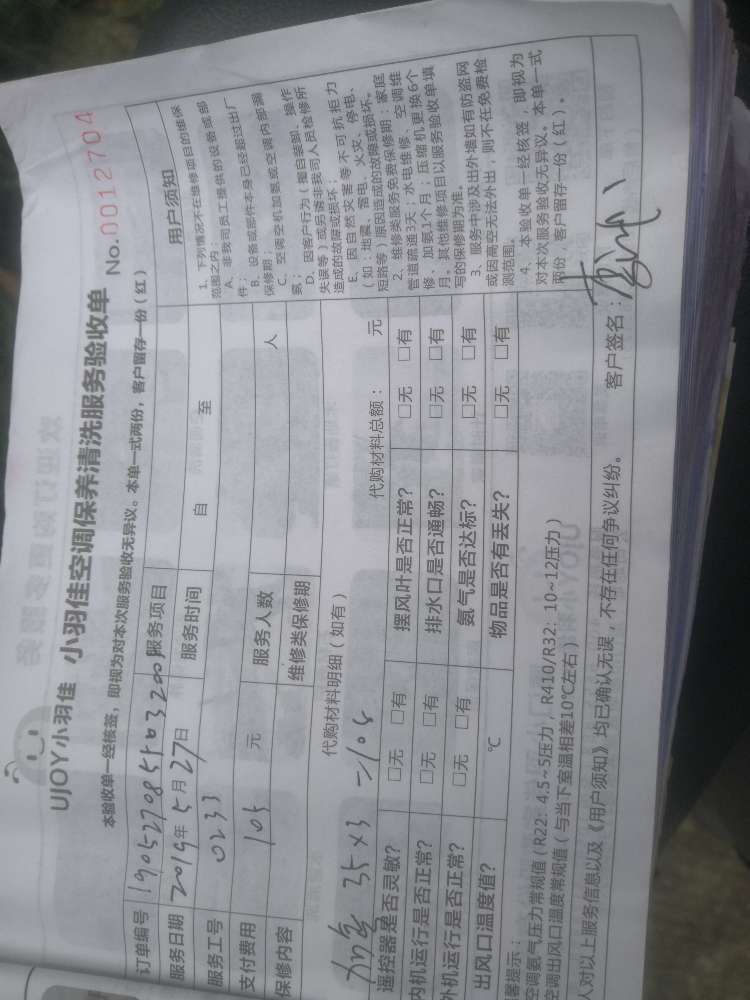 UJOY小羽佳 小羽佳空调保养清洗服务验收单
No.0012704
本验收单一经核签,即视为对本次服务验收无异议。本单一式两份,客户留存一份(红)
订单编号 服务项目
服务日期 2019年5月27日 服务时间 自 至
服务工号 0233
支付费用 105 元 服务人数 人
保修内容 维修类保修期
代购材料明细(如有) 代购材料总额: 元
35×3 =105
遥控器是否灵敏? □无 □有 摆风叶是否正常? □无 □有
内机运行是否正常? □无 □有 排水口是否通畅? □无 □有
外机运行是否正常? □无 □有 氨气是否达标? □无 □有
出风口温度值? ℃ 物品是否有丢失? □无 □有
馨提示:
空调氨气压力常规值(R22:4.5~5压力,R410/R32:10~12压力)
空调出风口温度常规值(与当下室温相差10℃左右)
人对以上服务信息以及《用户须知》均已确认无误,不存在任何争议纠纷。 客户签名:
用户须知
1、下列情况不在维修项目的维保
范围之内:
A、非我司员工提供的设备或部
件;
B、设备或部件本身已经超过出厂
保修期;
C、空调空机加氨或空调内部漏
氨;
D、因客户行为(擅自装卸、操作
失误等)或另请非我司人员检修所
造成的故障或损坏;
E、因自然灾害等不可抗拒力
(如:地震、雷电、火灾、停电、
短路等)原因造成的故障或损坏。
2、维修类服务免费保修期:家庭
管道疏通3天;水电维修、空调维
修、加氨1个月;压缩机更换6个
月。其他维修项目以服务验收单填
写的保修期为准。
3、服务中涉及出外墙如有防盗网
或因高空无法外出,则不在免费检
测范围。
4、本验收单一经核签,即视为
对本次服务验收无异议。本单一式
两份,客户留存一份(红)。